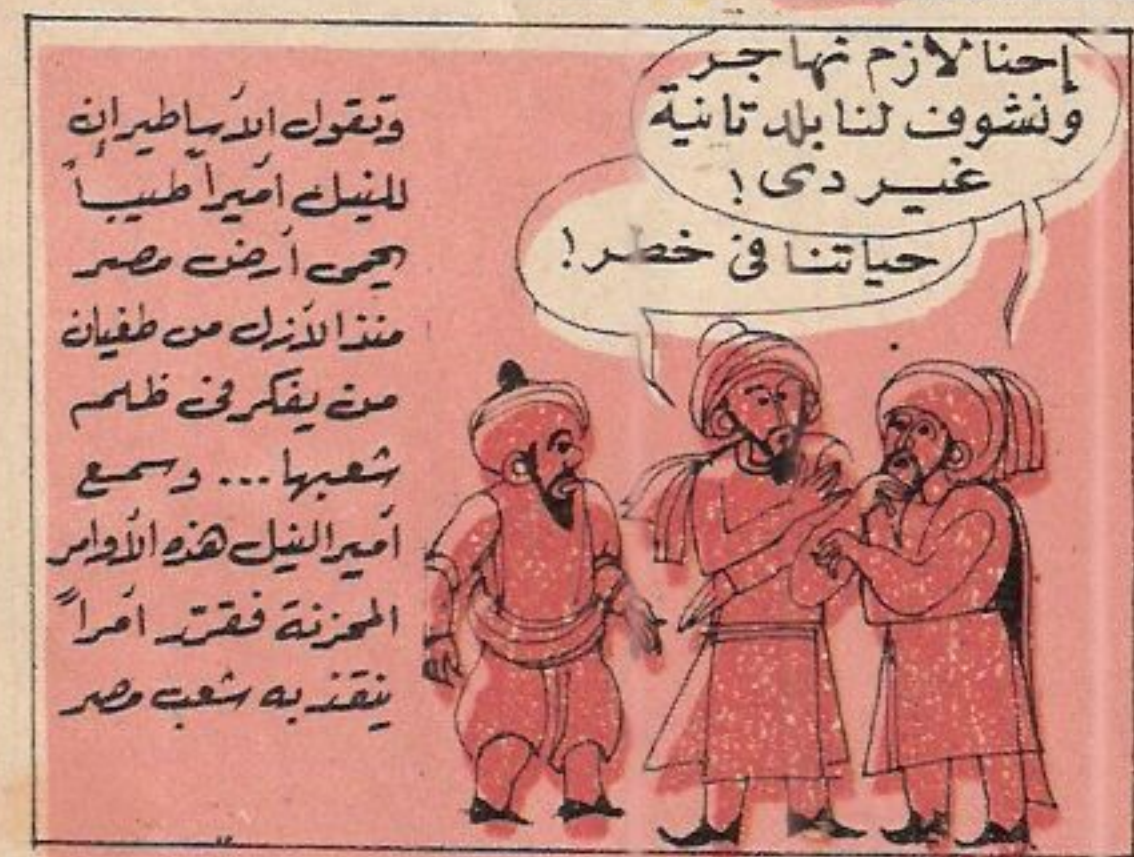 إحنا لازم نهاجر
ونشوف لنا بلد تانية
غير دى !
حياتنا فى خطر !
وتقول الأساطير ان
للنيل أميراً طيباً
يحمى أرض مصر
منذ الأزل من طغيان
من يفكر فى ظلم
شعبها ... وسمع
أمير النيل هذه الأوامر
المحزنة فقرّر أمراً
ينقذ به شعب مصر